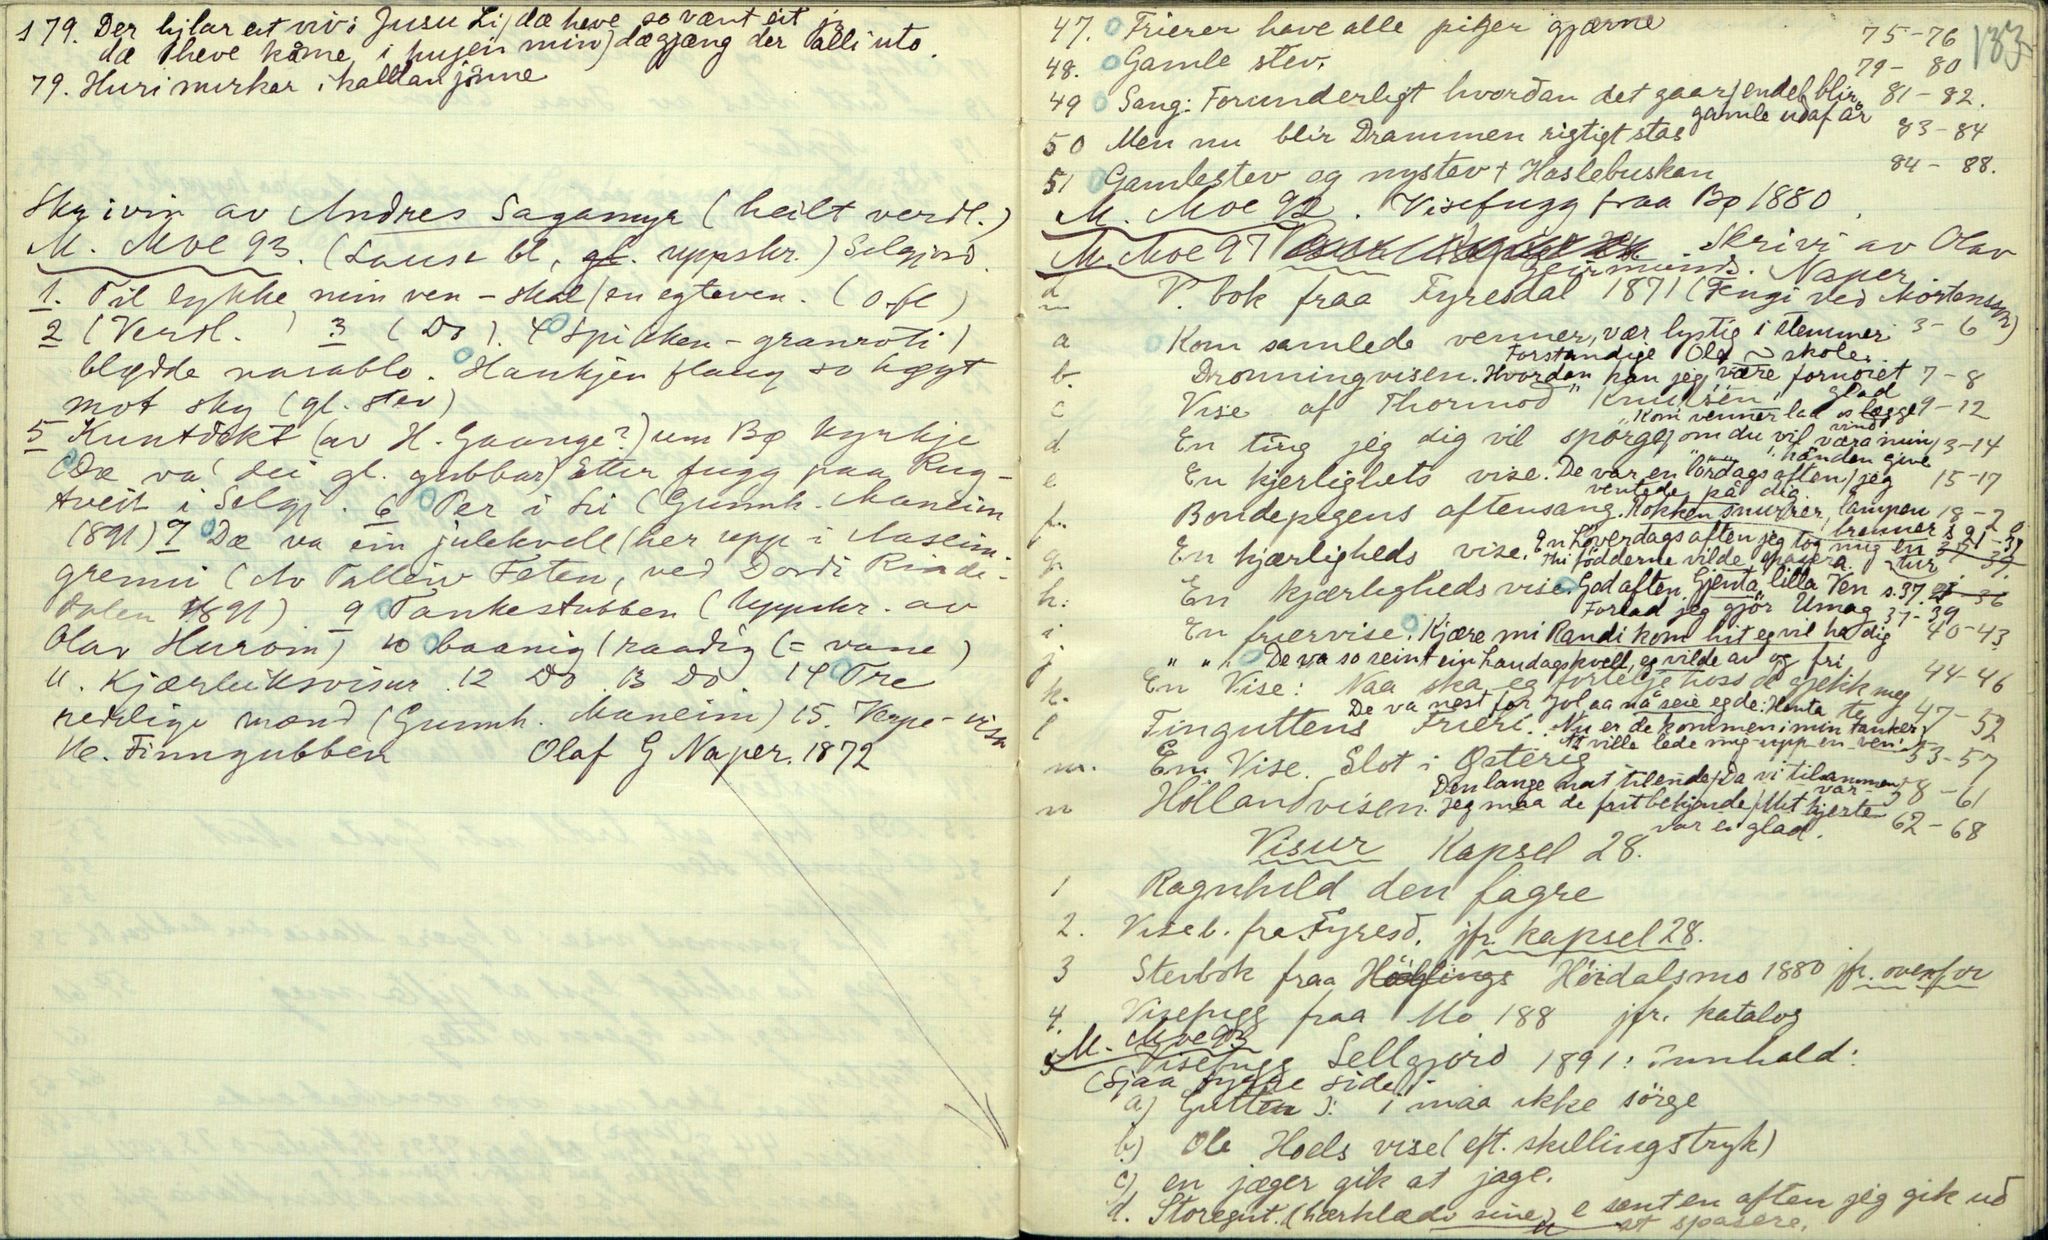 s 79. Der hjlar eit viv i Jusu Li, dæ heve so vænt eit
dæ heve kåme i hugjen min) dægjæng der alli uto.
79. Huri murkar i hallan jönne
Skrivin av Andres Sagamyr (heilt verdl.)
M. Moe 93. (Lause bl, gl. uppskr.) Selgjord.
1. Til lykke min ven - skal/en egteven. (o.fl)
2 (Verdl. 3 (Do). 4 Spikken - granroti)
blødde nasablo. Haukjen flaug so høgt
mot sky (gl. stev)
5 Kunstdikt (av H. Gaange?) um Bø kyrkje
(Dæ va' dei gl. gubbar) Etter fugg paa Rug-
tveit i Selgj. 6 Per i Li (Gunnh. Maneim
1891) 7 Dæ va ein julekvell (her upp i Aaseim-
grenni (Av Talleiv Faten, ved Dordi Rindi-
dalen 1891) 9 Tankestubben (Uppskr. av
Olav Hurom) 10 baanig (raadig (= vane)
11. Kjærleiksvisur. 12 Do. 13 Do. 14 Tre
redelige mænd (Gunnh. Maneim) 15. Veppe-visa
16. Finngubben Olaf G Naper. 1872
133
47. Frierer have alle piger gjærne 75-76
48. Gamle stev. 79-80
49 Sang: Forunderligt hvordan det gaar/ endel blir gamle udaf år 81-82.
50 Men nu blir Drammen rigtigt stas 83-84
51 Gamlestev og nystev + Haslebuskan 84-88.
M. Moe 92. Visefugg fraa Bø 1880.
M. Moe 97 Skrivi av Olav
Geirmunds. Naper
V. bok fraa Fyresdal 1871 (Fengi ved Mortensson)
a Kom samlede venner, vær lystig i stemmer 3-6
b. Dronningvisen. Forstandige Olā ~ skole. Hvordan kan jeg være fornøiet 7-8
c Vise af Thormod Knudsen "Kom venner lad os lægge 9-12
d En ting jeg dig vil spørge, om du vil være min 13-14
e En kjerligheds vise. De var en lördags aften/ jeg ventede på dig 15-17
f. Bondepigens aftensang. Rokken snurrer, lampen brenner 18-20
g. En kjærligheds vise. En Löverdags aften jeg tog mig en tur s 21-
thi fødderne vilde spasera.
h. En kjærligheds vise. God aften, Gjenta lilla Ven s. 37.
Forlad jeg gjör Umag 37-39
i En friervise. Kjære mi Randi kom hit eg vil ha dig 40-43
j " " De va so seint ein Laudagskvell, eg vilde av og fri
k. En Vise: Naa ska eg fortelje hoss de gjekk meg 44-46
De va nest før Jol, aa nå seie eg de: Henta te 47-52
l Tinguttens Frieri. Nu er de kommen i min tanker
At ville lede mig upp en ven: 53-57
m. En Vise. Slot i Østerig
n Hollandvisen. Den lange nat tilende/ Da vi tilsammen var 58-61
Jeg maa de frit bekjende/ Mit hjerte var ei glad. 62-68
Visur Kapsel 28.
1 Ragnhild den fagre
2. Viseb. fra Fyresd. jfr. kapsel 28.
3 Stevbok fraa Höidalsmo 1880 jfr. ovenfor
4. Visefugg fraa Mo 188 jfr. katalog
M. Moe 93
5 Visefugg Sellgjord 1891: Innhald:
(Sjaa fyrre side)
a) Gutten J: i maa ikke sörge
b) Ole Hoels vise (eft. skillingstryk)
c) en jæger gik at jage.
d. Storegut. (hærklædi sine) e sent en aften jeg gik ud
at spasere.